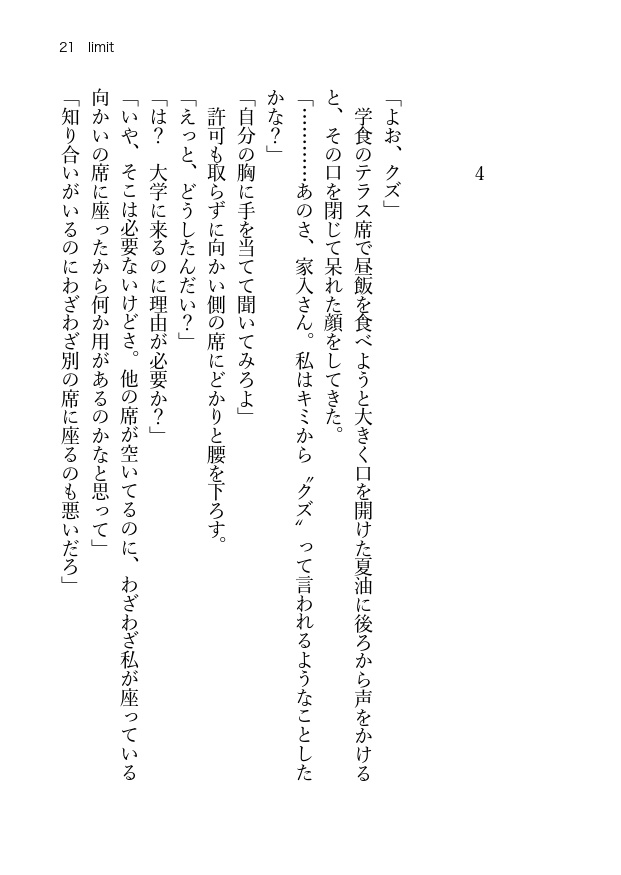 21 limit
4
「よお、クズ」
　学食のテラス席で昼飯を食べようと大きく口を開けた夏油に後ろから声をかける
と、その口を閉じて呆れた顔をしてきた。
「…………あのさ、家入さん。私はキミから〝クズ〟って言われるようなことした
かな？」
「自分の胸に手を当てて聞いてみろよ」
　許可も取らずに向かい側の席にどかりと腰を下ろす。
「えっと、どうしたんだい？」
「は？　大学に来るのに理由が必要か？」
「いや、そこは必要ないけどさ。他の席が空いてるのに、わざわざ私が座っている
向かいの席に座ったから何か用があるのかなと思って」
「知り合いがいるのにわざわざ別の席に座るのも悪いだろ」